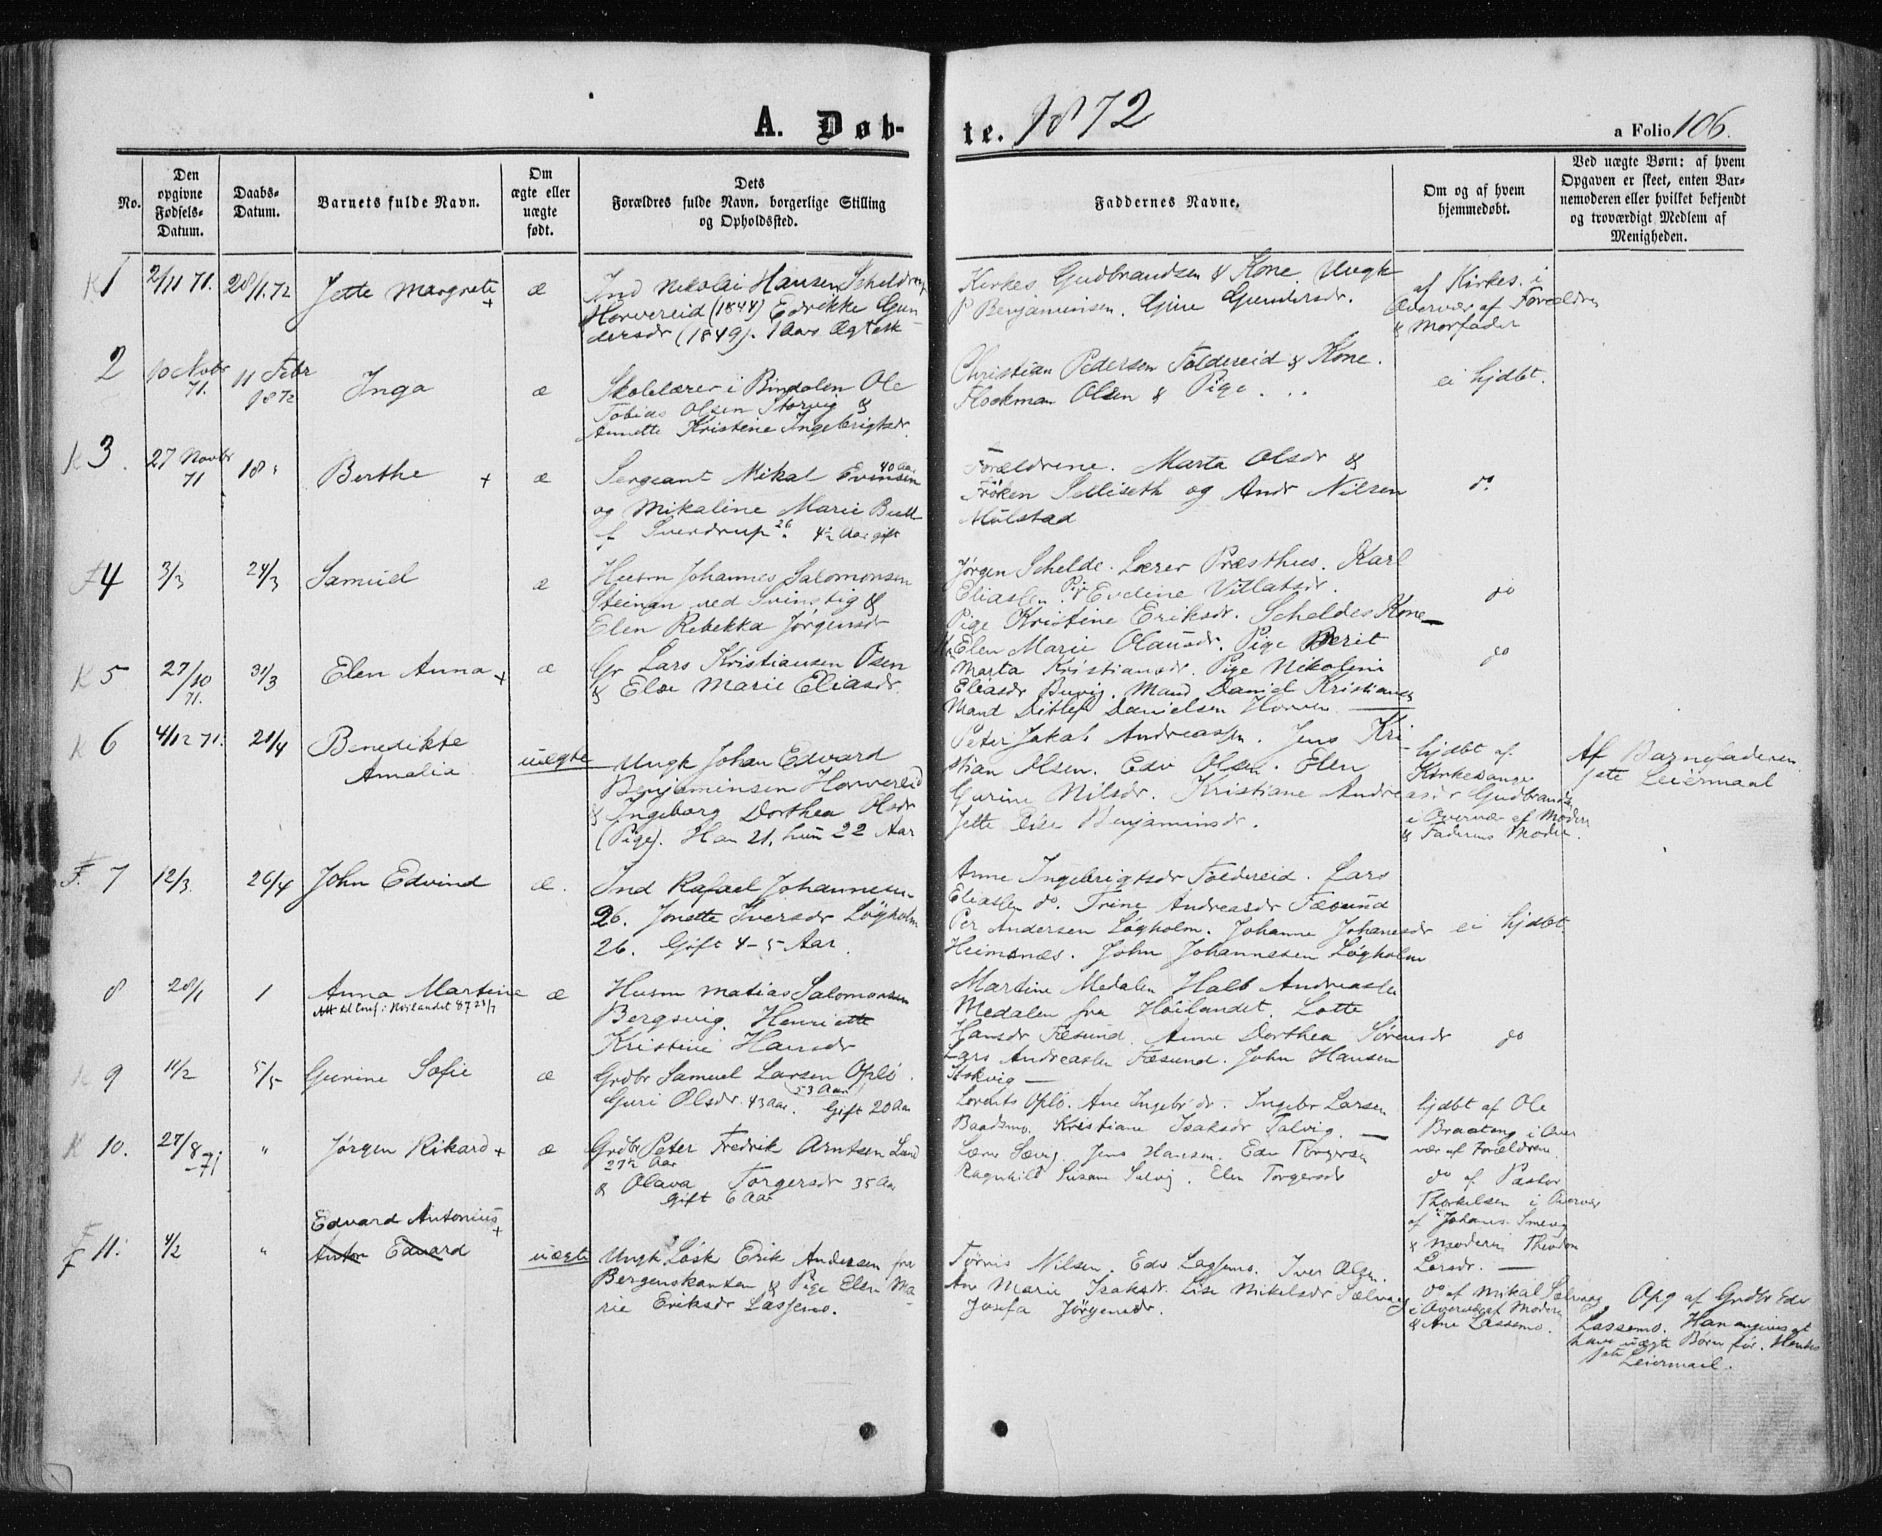 A. Døb-
te. 1872
a Folio 106.
No.
Den opgivne Fødsels-Datum.
Daabs-Datum.
Barnets fulde Navn.
Om ægte eller uægte født.
Dets Forældres fulde Navn, borgerlige Stilling og Opholdssted.
Faddernes Navne.
Om og af hvem hjemmedøbt.
Ved uægte Børn: af hvem Opgaven er skeet, enten Barnemoderen eller hvilket bekjendt og troværdigt Medlem af Menigheden.
K 1 2/11 71. 28/1.72 Jette Margrete + æ
Ind Nikolai Hansen Scheldren
Horvereid (1844) Edrikke Gun-
dersdr (1849). 1 Aars Ægtesk
Kirkes Gudbrandsen & Kone. Ungk
P Benjaminsen. Gine Gundersdr.
af Kirkes. i
Overvær af Forældre
& Morfader
2 10 Novbr 71. 11 Febr 1872 Inga æ
Skolelærer i Bindalen Ole
Tobias Olsen Storvig &
Annette Kristine Ingebrigtsdr.
Christian Pedersen Foldereid & Kone.
Flookman Olsen & Pige . . .
ei hjdbt.
K 3. 27 Novbr 71 18 " Berthe + æ
Sergeant Mikal Evensen 40 Aar
og Mikaline Marie Bull
f Sverdrup 26. 4½ Aar gift
Forældrene. Marta Olsdr &
Frøken Selliseth og Andr Nilsen
Mulstad
do
F 4 3/3 24/3 Samuel æ
Husm Johannes Salomonsen
Steinan ved Svinstig &
Elen Rebekka Jørgensdr
Jørgen Schelde. Lærer Præsthus. Karl
Eliassen. Pige Evdine Villatsdr.
Pige Kristine Eriksdr. Scheldes Kone
do
K 5 27/10 71. 31/3 Elen Anna + æ
Gr Lars Kristiansen Osen
& Else Marie Eliasdr.
Elen Marie Olausdr. Pige Berit
Marta Kristiansdr. Pige Nikoline
Eliasdr Buvig. Mand Daniel Kristians
Mand Ditlef Danielsen Horven
do
K 6 4/12 71. 21/4 Benedikte
Amalia uægte
Ungk Johan Edvard
Benjaminsen Horvereid
& Ingeborg Dorthea Olsdr
(Pige). Han 21, hun 22 Aar
Peter Jakob Andreassen. Jens Kri-
stian Olsen. Edv Olsen. Elen
Gurine Nilsdr. Kristiane Andreasdr
Jette Elise Benjaminsdr.
hjdbt af
Kirkesanger
Gudbrands.
i Overvær af Moder
& Faderens Moder.
Af Barnefaderen
1ste Leiermaal
F. 7 12/3. 26/4 John Edvind æ.
Ind Rafael Johannesen
26. Jonette Iversdr Løgholm
26. Gift 4-5 Aar.
Anne Ingebrigtsdr Foldereid. Lars
Eliassen do. Trine Andreasdr Fæsund
Per Andersen Løgholm. Johanne Johanesdr
Heimsnæs. John Johannesen Løgholm
ei hjdbt
8 28/1 1 Anna Martine æ
Att til Conf. i Høilandet 87 21/7
Husm Matias Salomonsen
Bergsvig. Henriette
Kristine Hansdr
Martine Medalen Halb Andreassen
Medalen fra Høilandet. Lotte
Hansdr Fæsund. Anne Dorthea Sørensdr
Lars Andreassen Fæsund. John Hansen
Kokvig
do
K 9 11/2 5/5 Gurine Sofie æ
Grdbr Samuel Larsen Oplø.
53 Aar
Guri Olsdr 43 Aar. Gift 20 Aar
Lorents Oplø. Ane Ingebr dr. Ingebr Larsen
Baadsmo. Kristiane Isaksdr Salvig.
hjdbt af Ole
Braateng i Over
vær af Forældrene.
K 10. 27/8 71 " Jørgen Rikard + æ
Grdbr Peter Fredrik Arntsen Lund
27½ Aar
& Olava Torgersdr 35 Aar
Gift 6 Aar
Lærer Sævig. Jens Hansen. Edv Torgersen
Ragnhild Susane Salvig. Elen Torgersdr
do af Pastor
Thorkelsen i Overvær
af Johans. Smevig
& Moderen Theodora
Larsdr.
F 11. 4/2 " Edvard Antonius +
Anton Edvard uægte
Ungk Løsk Erik Andersen fra
Bergenskanten & Pige Elen Ma-
rie Eriksdr Lassemo.
Tørris Nilsen. Edv Lassemo. Iver Olsen.
An Marie Isaksdr. Lise Mikelsdr Sælvaag
Josefa Jørgensdr.
do af Mikal Sælvaag
i Overvær af Moderen
& Ane Lassemo.
Opg af Grdbr Edv
Lassemo. Han angives at
have uægte Børn før. Hendes
1ste Leiermaal.